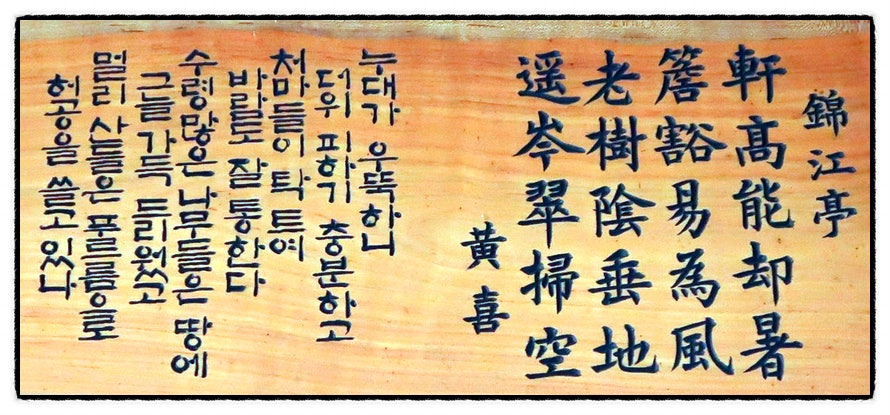 錦江亭
軒高能却暑
簷豁易為風
老樹陰垂地
遥岑翠掃空
黃喜
누대가 우뚝하니
더위 피하기 충분하고
처마들이 탁 트여
바람도 잘 통한다
수령많은 나무들은 땅에
그늘 가득 드리웠고
멀리 산들은 푸르름으로
허공을 쓸고있다